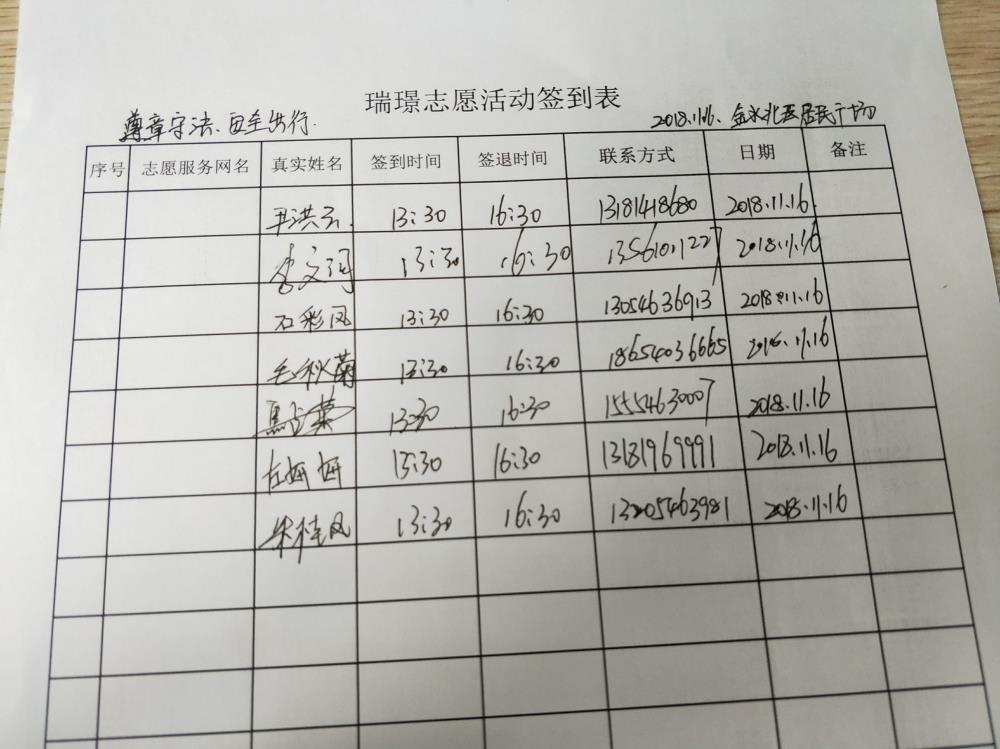 瑞璟志愿活动签到表
遵章守法、安全出行. 2018.11.16、金水北区居民广场
序号 志愿服务网名 真实姓名 签到时间 签退时间 联系方式 日期 备注
尹洪云 13:30 16:30 13181418680 2018.11.16
李文 13:30 16:30 13561011227 2018.11.16
石彩凤 13:30 16:30 13054636913 2018.11.16
毛秋菊 13:30 16:30 18654036665 2018.11.16
13:30 16:30 15554630007 2018.11.16
左妍妍 13:30 16:30 13181969991 2018.11.16
朱桂凤 13:30 16:30 13205463981 2018.11.16